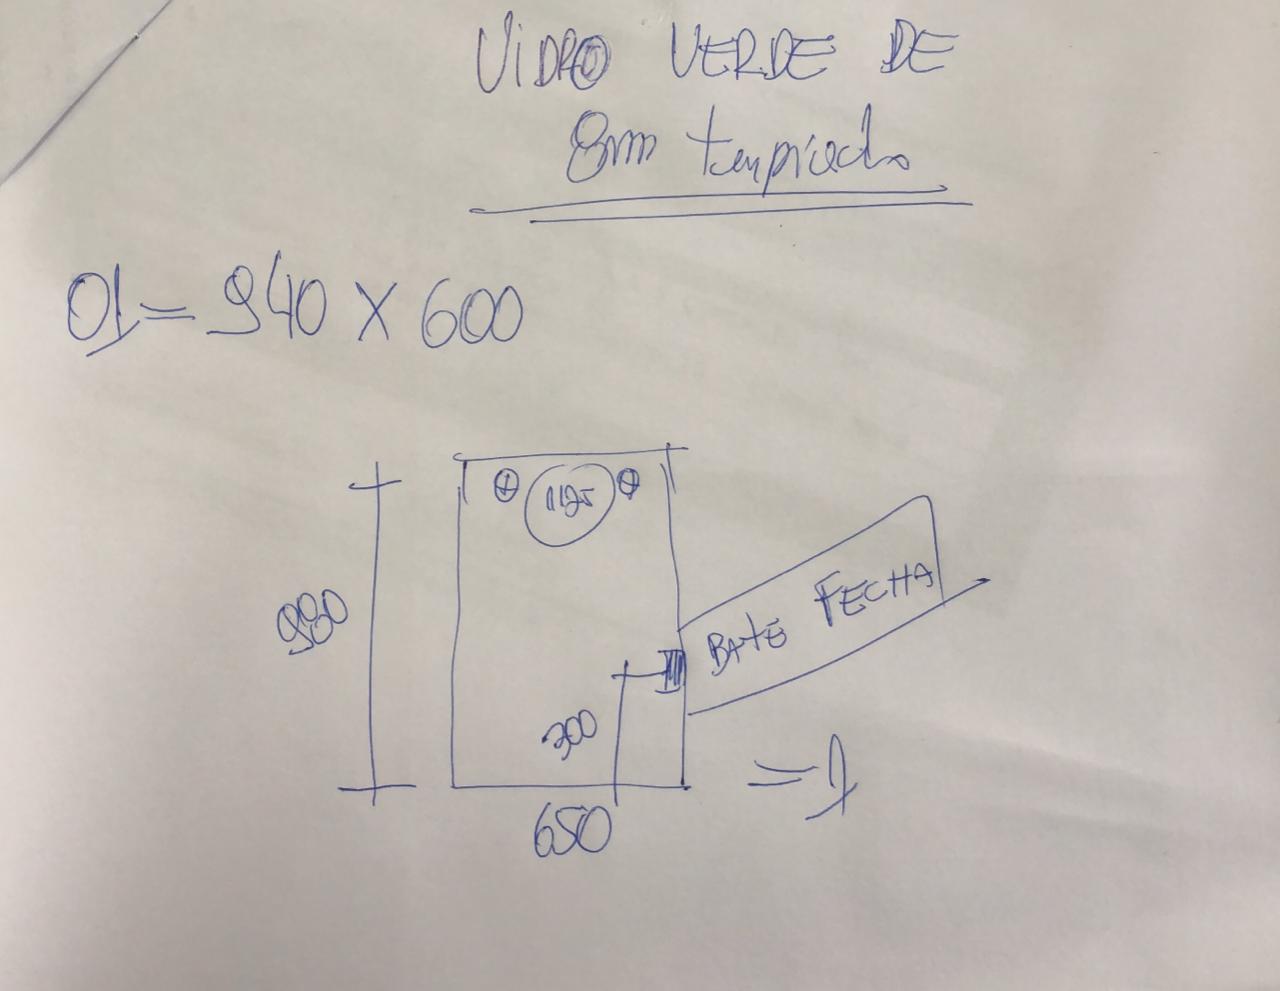 VIDRO VERDE DE
8mm temperado
01 = 940 X 600
1125
980
BATE FECHA
300
= 1
650